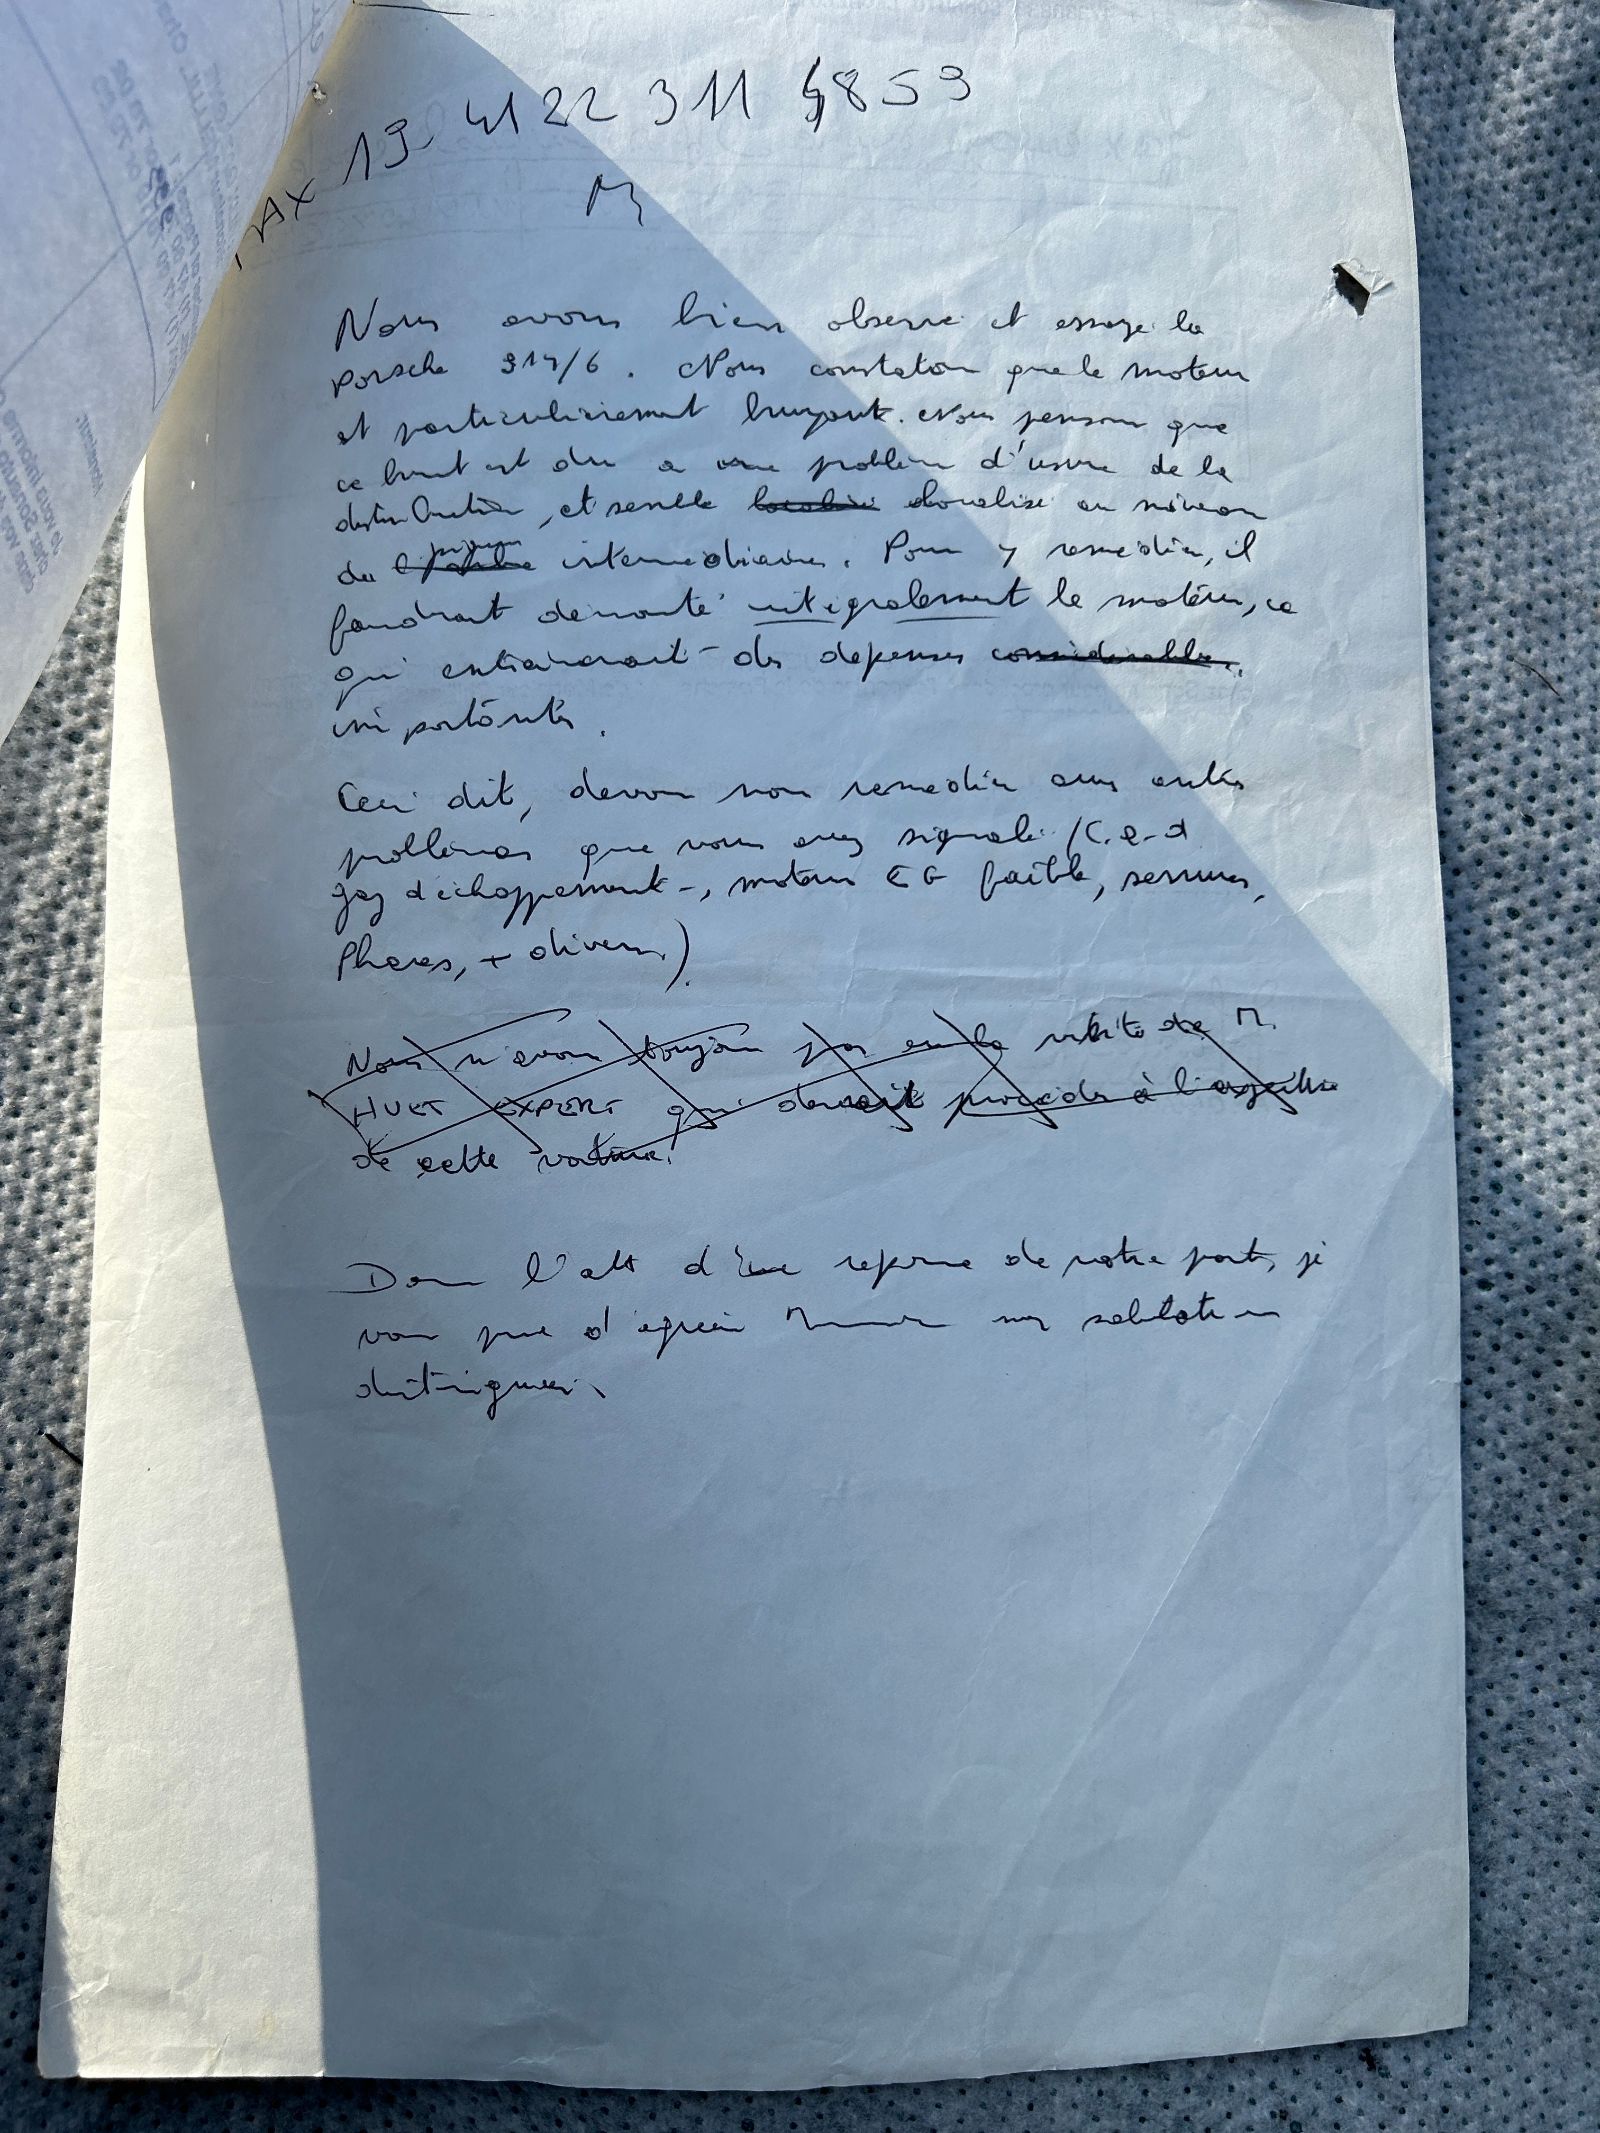 FAX 19 41 22 311 4859
M
Nous avons bien observé et essayé la
porsche 914/6. Nous constaton que le moteur
et particulièrement bruyant. Nous penson que
ce bruit est du a une problème d'usure de la
distribution, et semble localisé localisé au niveau
du pignon intermediaires. Pour y remedier, il
faudrait demonté intégralement le moteur, ce
qui entrainerait des depenses considerables.
importantes.
Ceci dit, devon nou remedier aux autres
problèmes que vous avez signalé (C.a.d
gaz d'échappement -, moteur EG faible, serrures,
Phares, + divers).
Nous n'avons toujours pas eu la visite de M.
HUET EXPERT qui devait procéder à l'expertise
de cette voiture.
Dans l'att d'une reponse de votre part, je
vous prie d'agréer Monsieur mes salutations
distinguées.